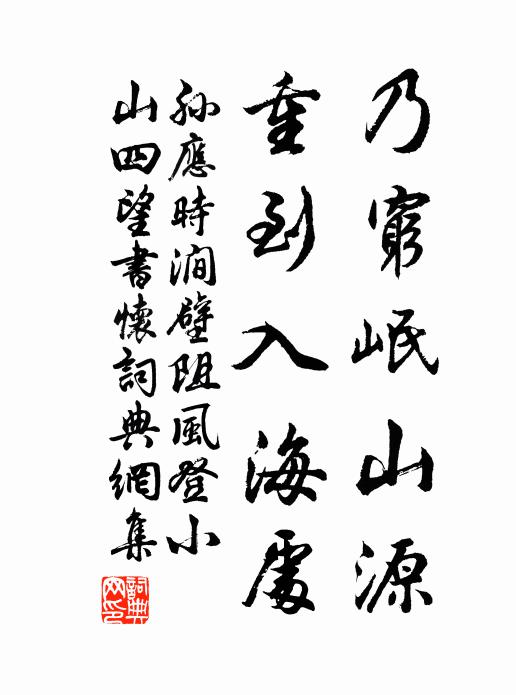 乃窮岷山源
重到入海處
孫應時澗壁阻風登小
山四望書懷詞典網集
詞典網印